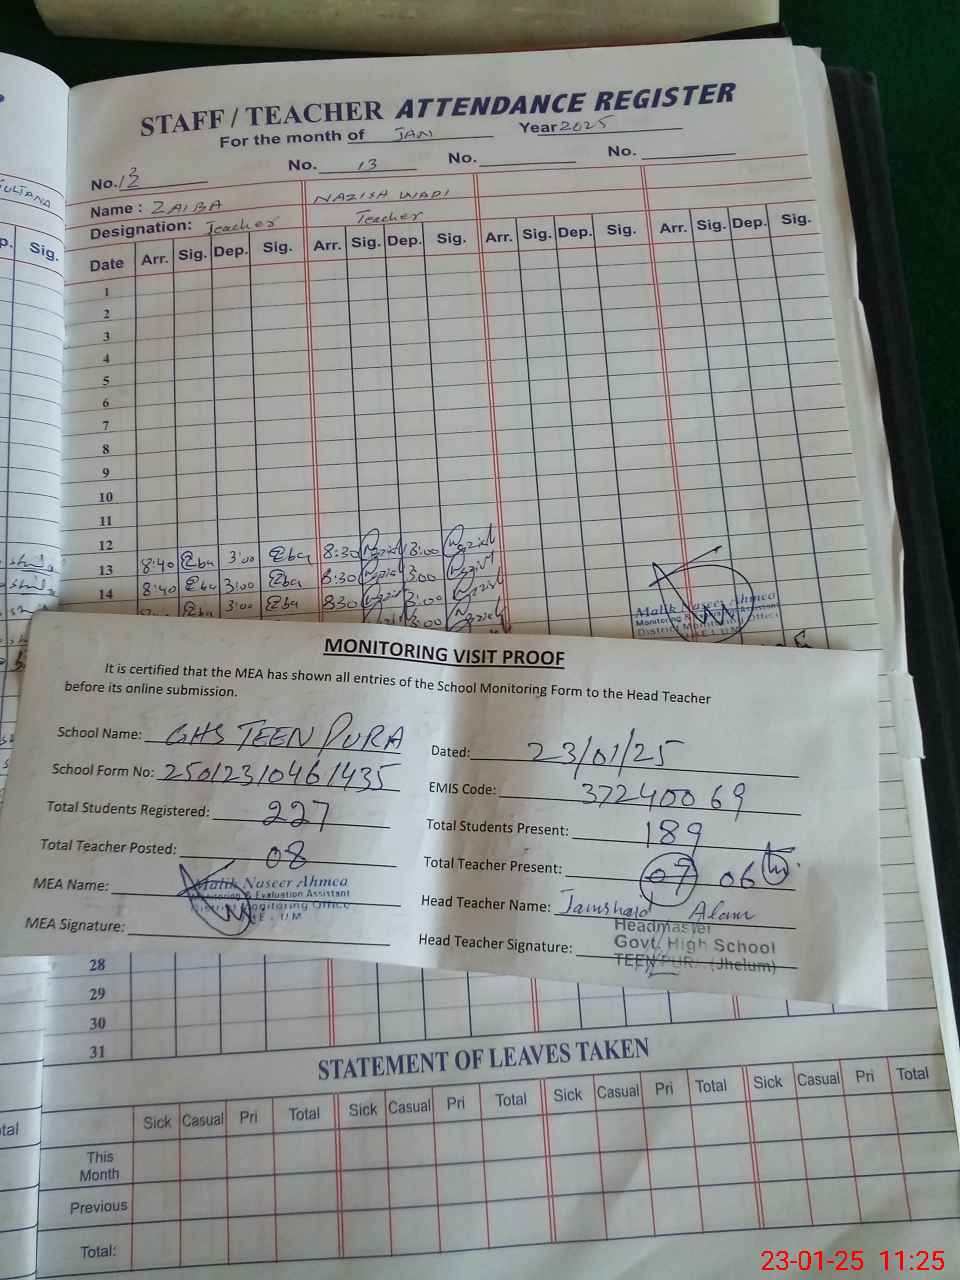 STAFF / TEACHER ATTENDANCE REGISTER
For the month of JAN Year 2025
No. 12 No. 13 No. No.
Name : ZAIBA NAZISH WADI
Designation: Teacher Teacher
Date Arr. Sig. Dep. Sig. Arr. Sig. Dep. Sig. Arr. Sig. Dep. Sig. Arr. Sig. Dep. Sig.
p. Sig.
1
2
3
4
5
6
7
8
9
10
11
12
13 8:40 3:00 8:30 3:00
14 8:40 3:00 8:30 3:00
3:00 8:30 3:00
3:00
Malik Naseer Ahmed
Monitoring & Evaluation Assistant
District Monitoring Office
JHELUM
MONITORING VISIT PROOF
It is certified that the MEA has shown all entries of the School Monitoring Form to the Head Teacher
before its online submission.
School Name: GHS TEEN PURA Dated: 23/01/25
School Form No: 25012310461435 EMIS Code: 37240069
Total Students Registered: 227 Total Students Present: 189
Total Teacher Posted: 08 Total Teacher Present: 07 06
MEA Name: Malik Naseer Ahmed
Monitoring & Evaluation Assistant
District Monitoring Office
JHELUM
Head Teacher Name: Jamshaid Alam
MEA Signature: Head Teacher Signature:
Headmaster
Govt. High School
TEEN PURA (Jhelum)
28
29
30
31
STATEMENT OF LEAVES TAKEN
Sick Casual Pri Total Sick Casual Pri Total Sick Casual Pri Total Sick Casual Pri Total
This
Month
Previous
Total:
23-01-25 11:25